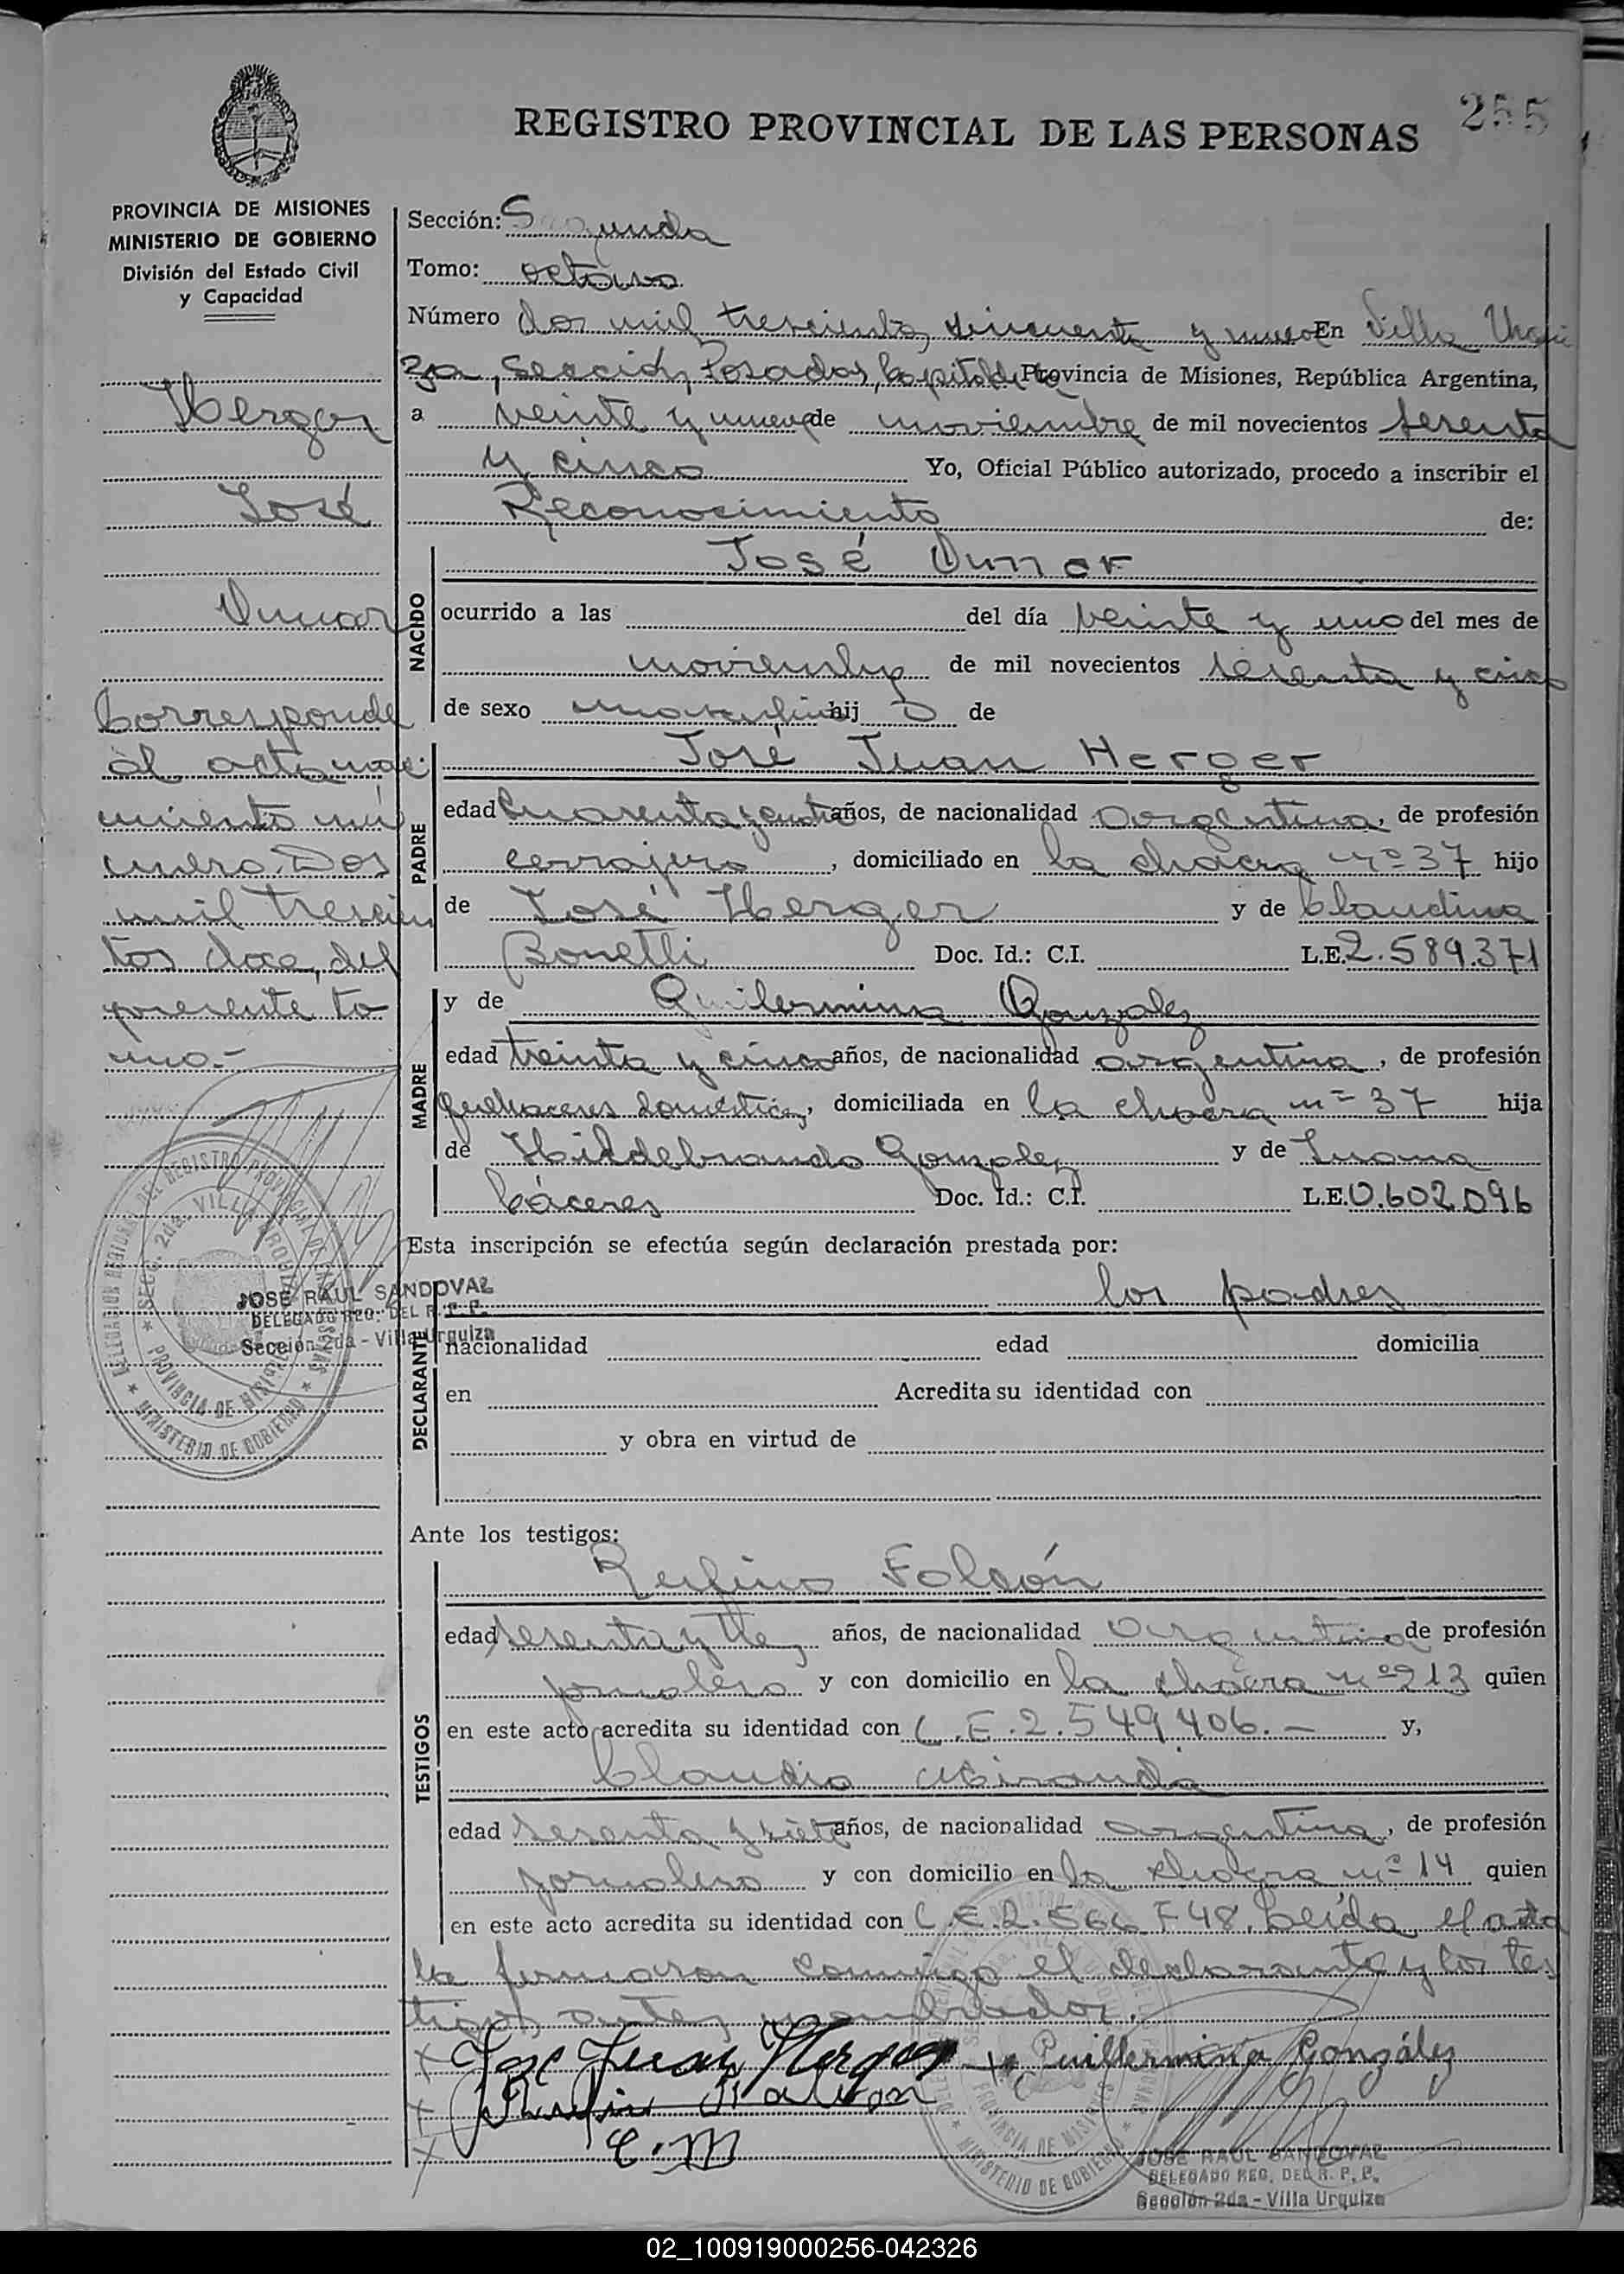 255
REGISTRO PROVINCIAL DE LAS PERSONAS
PROVINCIA DE MISIONES
MINISTERIO DE GOBIERNO
División del Estado Civil
y Capacidad
Herger
José
Omar
Corresponde
al acta naci
miento nú
mero Dos
mil trescien
tos doce, del
presente to
mo.-
JOSE RAUL SANDOVAL
DELEGADO REG. DEL R. P. P.
Sección 2da - Villa Urquiza
Sección: Segunda
Tomo: octavo
Número dos mil trescientos cincuenta y nueve En Villa Urqui
za, Sección, Posadas, Capital de la Provincia de Misiones, República Argentina,
a veinte y nueve de noviembre de mil novecientos sesenta
y cinco Yo, Oficial Público autorizado, procedo a inscribir el
Reconocimiento de:
NACIDO
José Omar
ocurrido a las del día veinte y uno del mes de
noviembre de mil novecientos sesenta y cinco
de sexo masculino hij o de
PADRE
José Juan Herger
edad cuarenta y cuatro años, de nacionalidad argentina, de profesión
cerrajero, domiciliado en la chacra nº 37 hijo
de José Herger y de Claudina
Bonetti Doc. Id.: C.I. L.E. 2.589.371
MADRE
y de Guilermina Gonzalez
edad treinta y cinco años, de nacionalidad argentina, de profesión
quehaceres domésticos, domiciliada en la chacra nº 37 hija
de Hildebrando Gonzalez y de Juana
Cáceres Doc. Id.: C.I. L.E. 0.602.096
Esta inscripción se efectúa según declaración prestada por:
DECLARANTE
los padres
nacionalidad edad domicilia
en Acredita su identidad con
y obra en virtud de
Ante los testigos:
TESTIGOS
Rufino Falcón
edad sesenta y tres años, de nacionalidad argentina de profesión
jornalero y con domicilio en la chacra nº 213 quien
en este acto acredita su identidad con L.E. 2.549.406.- y,
Claudio Miranda
edad sesenta y siete años, de nacionalidad argentina, de profesión
jornalero y con domicilio en la chacra nº 14 quien
en este acto acredita su identidad con L.E. 2.566.748. Leída el acta
la firmaron conmigo el declarante y los tes
tigos antes nombrados.
x Jose Juan Herger x Guillermina González
x Rufino Falcon
x C. M
JOSE RAUL SANDOVAL
DELEGADO REG. DEL R. P. P.
Sección 2da - Villa Urquiza
02_100919000256-042326